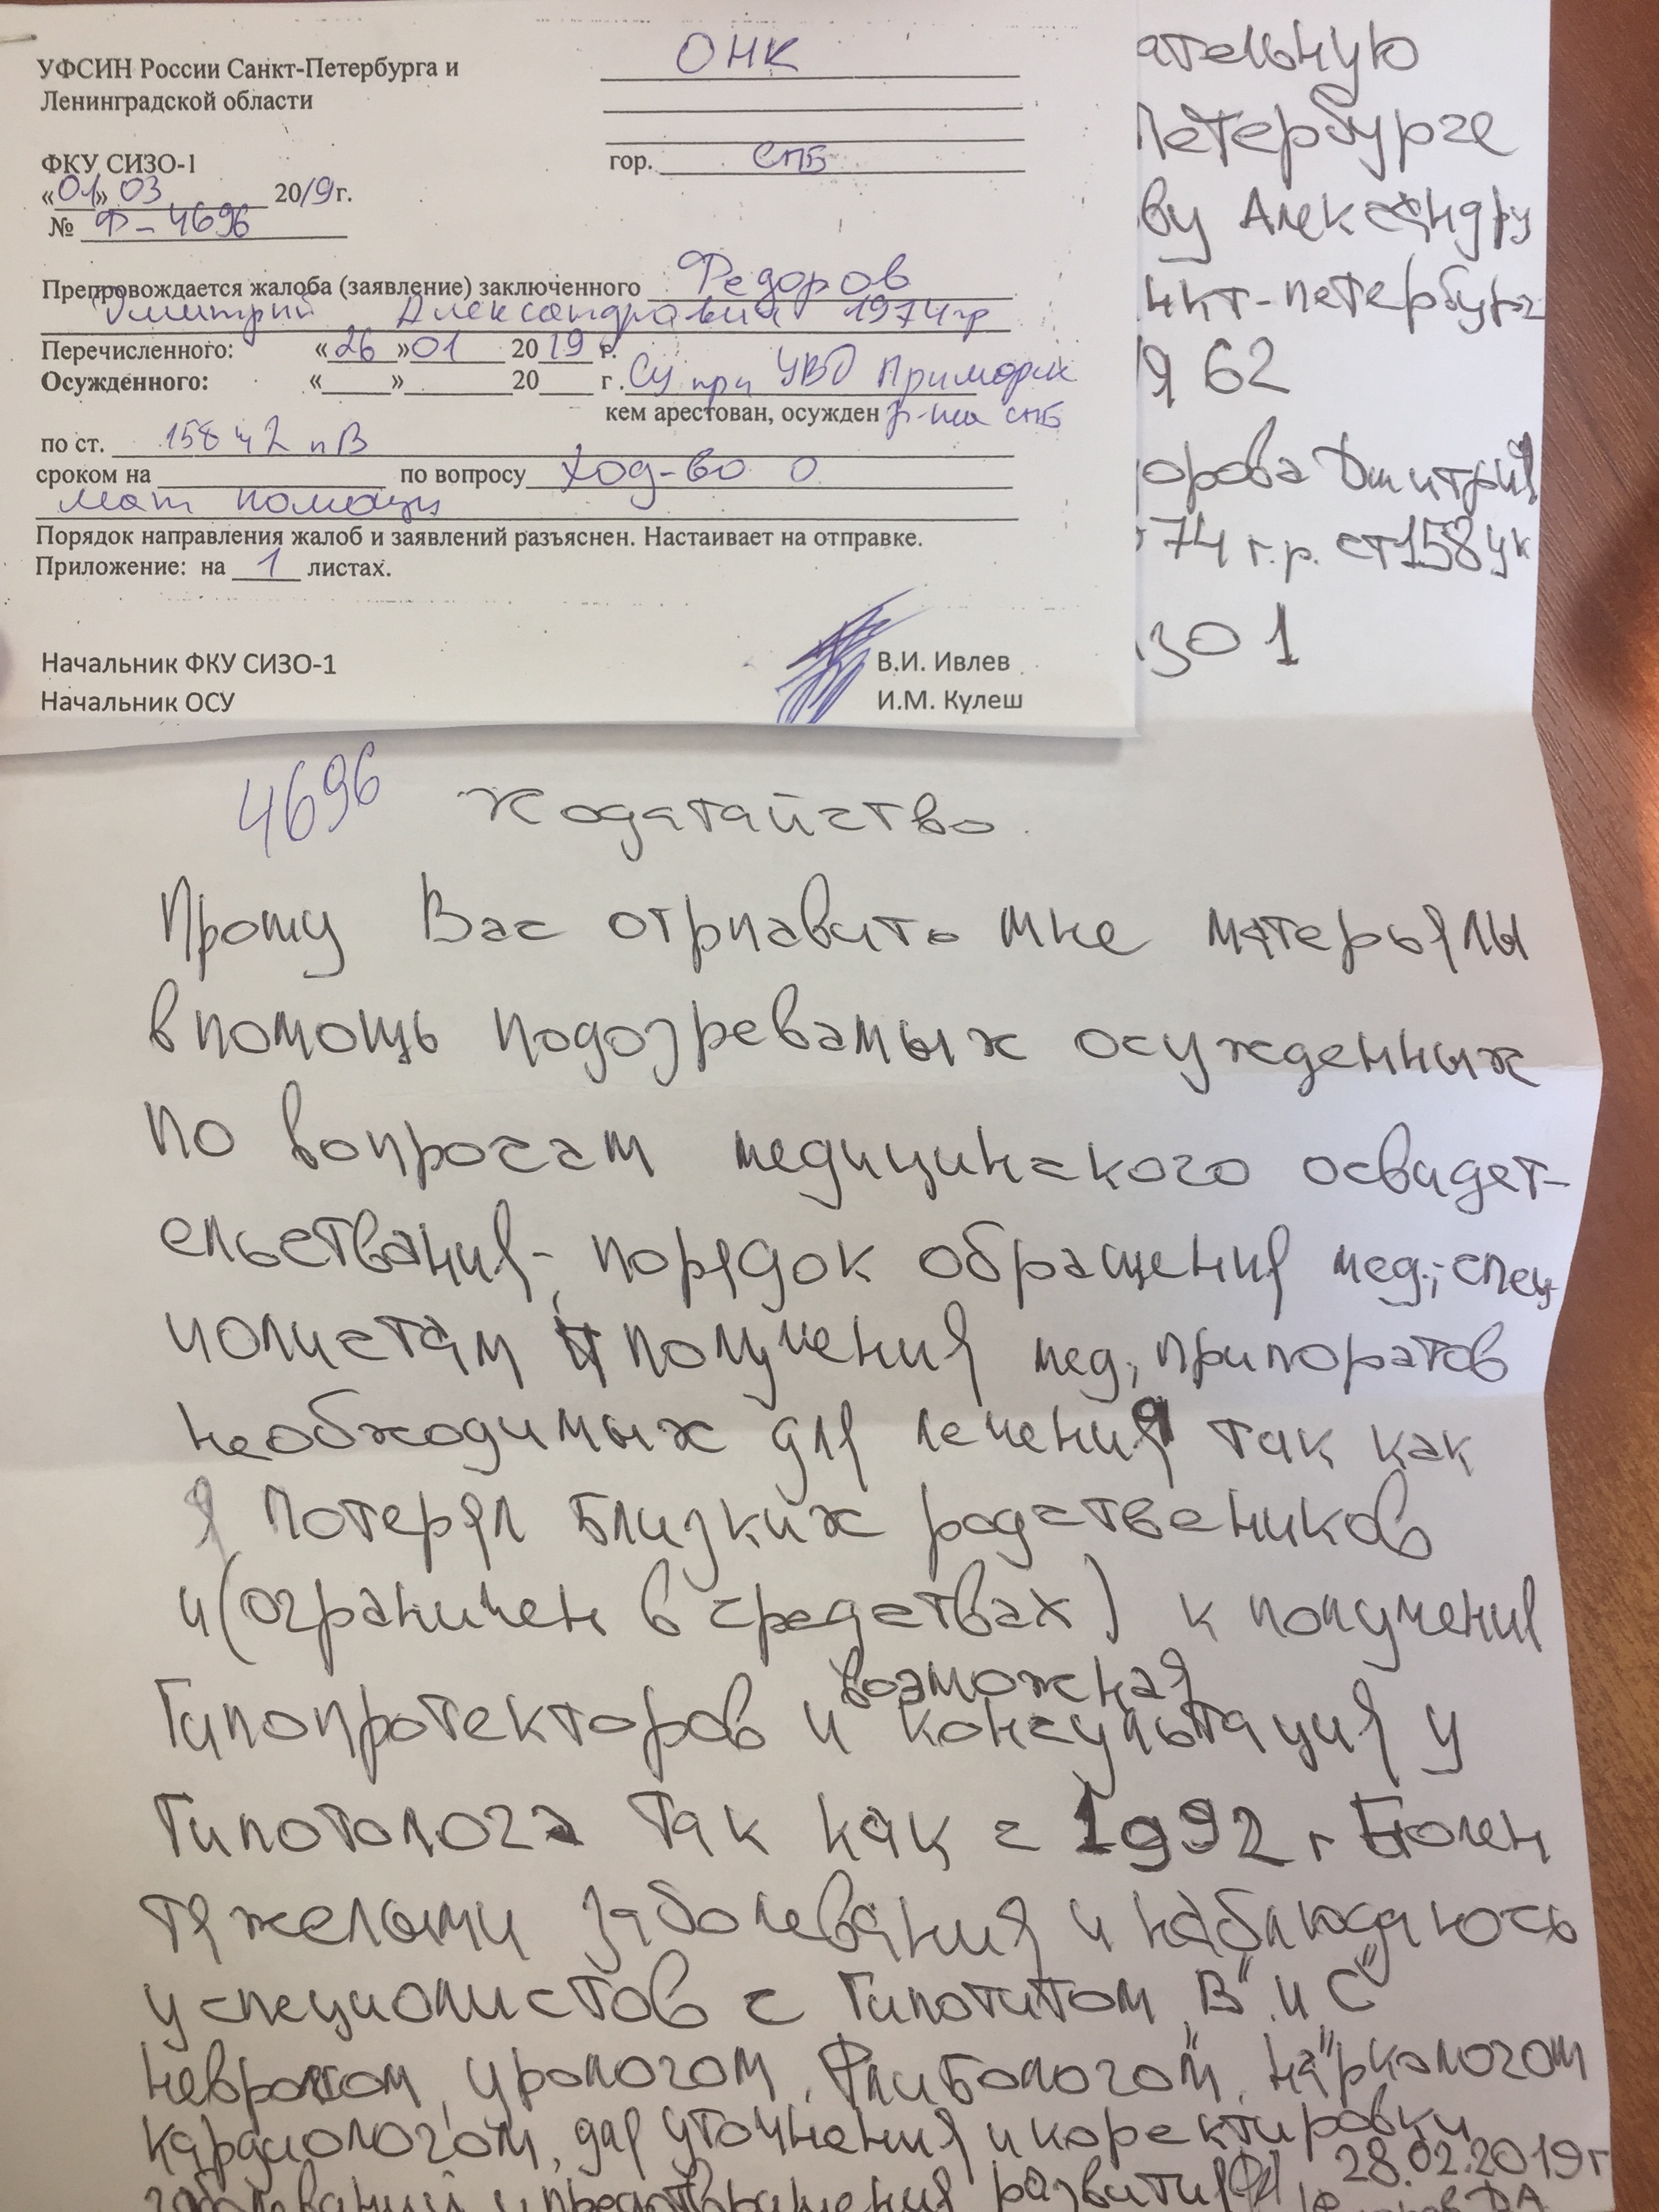 УФСИН России Санкт-Петербурга и
Ленинградской области
ОНК
ФКУ СИЗО-1
гор. СПБ
«01» 03 2019г.
№ Ф-4696
Препровождается жалоба (заявление) заключенного Федоров
Дмитрий Александрович 1974гр
Перечисленного: «26» 01 2019 г.
Осужденного: « » 20 г. СУ при УВД Приморск
кем арестован, осужден р-на СПБ
по ст. 158 ч 2 п В
сроком на по вопросу ход-во о
мат помощи
Порядок направления жалоб и заявлений разъяснен. Настаивает на отправке.
Приложение: на 1 листах.
Начальник ФКУ СИЗО-1 В.И. Ивлев
Начальник ОСУ И.М. Кулеш
ательную
Петербурге
ву Александру
нкт-петербург
я 62
орова Дмитрий
74 г.р. ст158ук
изо 1
4696 Ходатайство.
Прошу Вас отрпавить мне матерьялы
в помощь подозревамых осужденных
по вопросам медицинского освидет-
ельствания-, порядок обращения мед,-спец-
иолистам и получения мед, припоратов
необходимых для лечения так как
я потерял близких родствеников
и (ограничен в средствах) к получения
возможная
Гипопротекторов и консультация у
Гипотолога так как с 1992 г Болен
тяжелыми заболевания и наблюдаюсь
у специолистов с Гипотитом "В" и С"
невролом, урологом, "Флибологом", наркологом
кардиологом, для уточнения и коректировки
28.02.2019г
заболеваний и предотвращения развития